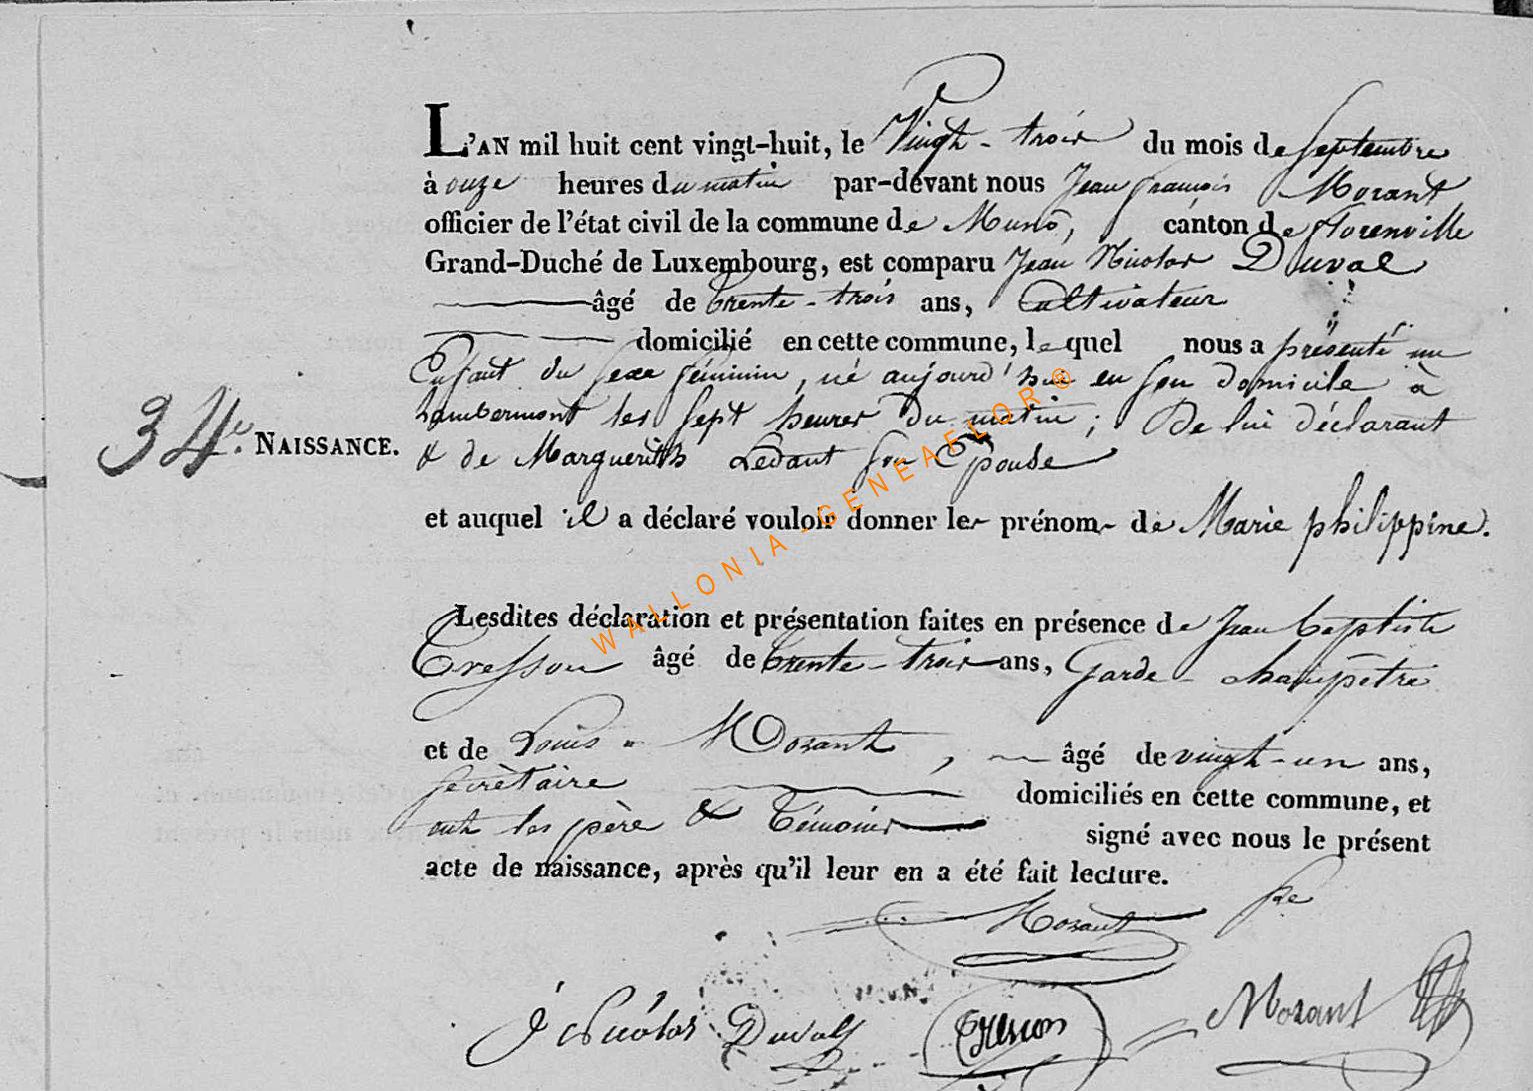 L'AN mil huit cent vingt-huit, le Vingt-trois du mois de Septembre
à onze heures du matin par-devant nous Jean françois Mozant
officier de l'état civil de la commune de Muno, canton de florenville
Grand-Duché de Luxembourg, est comparu Jean Nicolas Duval
âgé de trente-trois ans, Cultivateur
domicilié en cette commune, lequel nous a présenté un
Enfant du sexe féminin, né aujourd'hui en son domicile à
Lambermont les sept heures du matin; De lui déclarant
34e. NAISSANCE.
& de Marguerith Ledant son Epouse
et auquel il a déclaré vouloir donner les prénoms de Marie philippine.
Lesdites déclaration et présentation faites en présence de Jean baptiste
Tresson âgé de trente-trois ans, Garde-champêtre
et de Louis Mozant, âgé de vingt-un ans,
secrètaire domiciliés en cette commune, et
ont les père & témoins signé avec nous le présent
acte de naissance, après qu'il leur en a été fait lecture.
Mozant
J Nicolas Duval Tresson Mozant
WALLONIA-GENEAFLOR®